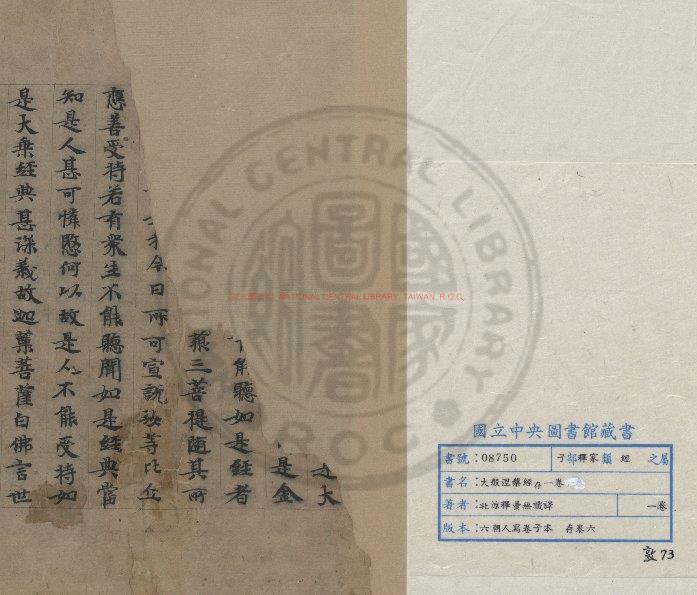 大
是金
能聽如是經者
藐三菩提随其所
我今日所可宣說汝等比丘
應善受持若有衆生不能聽聞如是經典當
知是人甚可憐愍何以故是人不能受持如
是大乘經典甚深義故迦葉菩薩白佛言世
國立中央圖書館藏書
書號:08750 子部釋家類 經 之屬
書名:大般涅槃經存一卷
著者:北涼釋曇無讖譯 一卷
版本:六朝人寫卷子本 存卷六
敦73
NATIONAL CENTRAL LIBRARY, TAIWAN, R.O.C.
NATIONAL CENTRAL LIBRARY